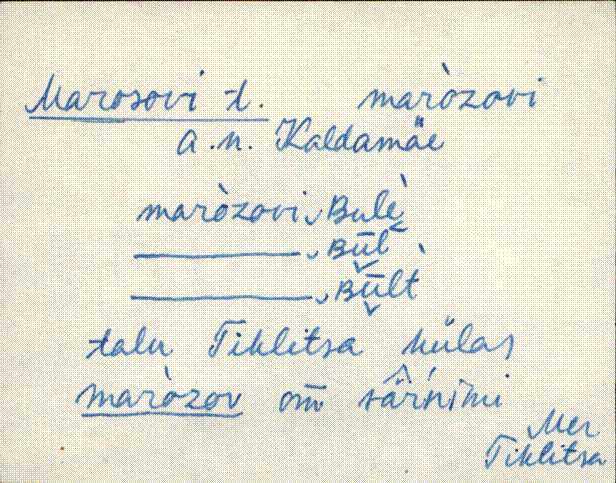 Marosovi t. maròzovi
a.n. Kaldamäe
maròzovi, Bulè
———, Būl
———, Būlt
talu Tiklitsa külas
maròzov om̄ sär̀nimi
Mer
Tiklitsa